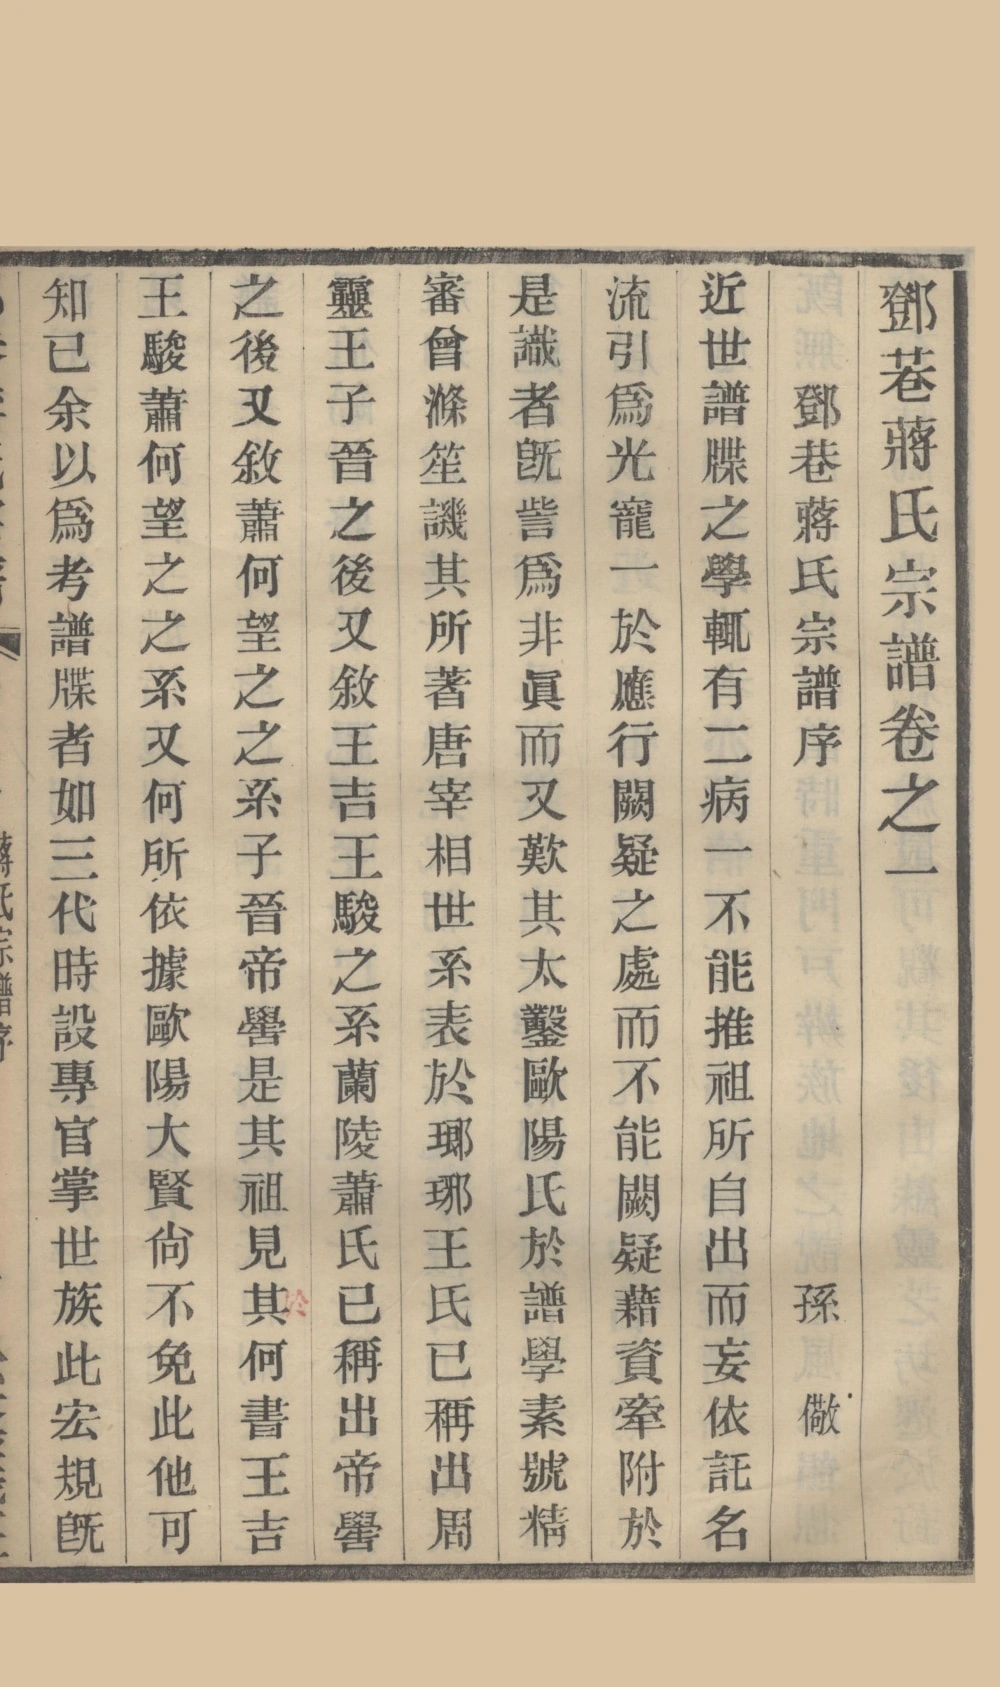 鄧巷蔣氏宗譜卷之一
鄧巷蔣氏宗譜序 孫儆
近世譜牒之學輒有二病一不能推祖所自出而妄依託名
流引爲光寵一於應行闕疑之處而不能闕疑藉資牽附於
是識者旣訾爲非眞而又歎其太鑿歐陽氏於譜學素號精
審曾滌笙譏其所著唐宰相世系表於瑯琊王氏已稱出周
靈王子晉之後又敘王吉王駿之系蘭陵蕭氏已稱出帝嚳
之後又敘蕭何望之之系子晉帝嚳是其祖見其何書王吉
於
王駿蕭何望之之系又何所依據歐陽大賢尙不免此他可
知已余以爲考譜牒者如三代時設專官掌世族此宏規旣
蔣氏宗譜序